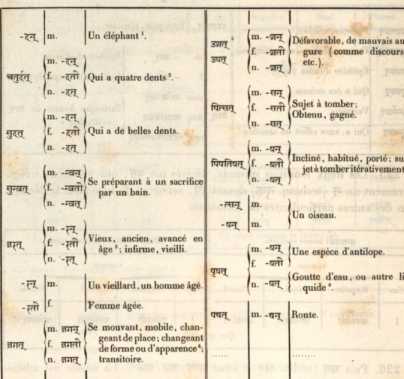 -दन् m. Un éléphant ¹.
चतुर्दत् m. -दन् f. -दती n. -दत् Qui a quatre dents ².
सुदत् m. -दन् f. -दती n. -दत् Qui a de belles dents.
सुन्वत् m. -न्वन् f. -न्वती n. -न्वत् Se préparant à un sacrifice
par un bain.
m. f. n. Vieux, ancien, avancé en
âge ³; infirme, vieilli.
m. Un vieillard, un homme âgé.
f. Femme âgée.
m. f. n. Se mouvant, mobile, chan-
geant de place; changeant
de forme ou d'apparence ⁴;
transitoire.
m. f. n. Défavorable, de mauvais au
gure (comme discours
etc.).
m. f. n. Sujet à tomber;
Obtenu, gagné.
पिपतिषत् m. -षन् f. -षती n. -षत् Incliné, habitué, porté; su
jet à tomber itérativement
m.
-षन् m.
Un oiseau.
पृषत् m. -षन् f. -षती Une espèce d'antilope.
n. -षत् Goutte d'eau, ou autre li
quide ⁶.
m. Route.